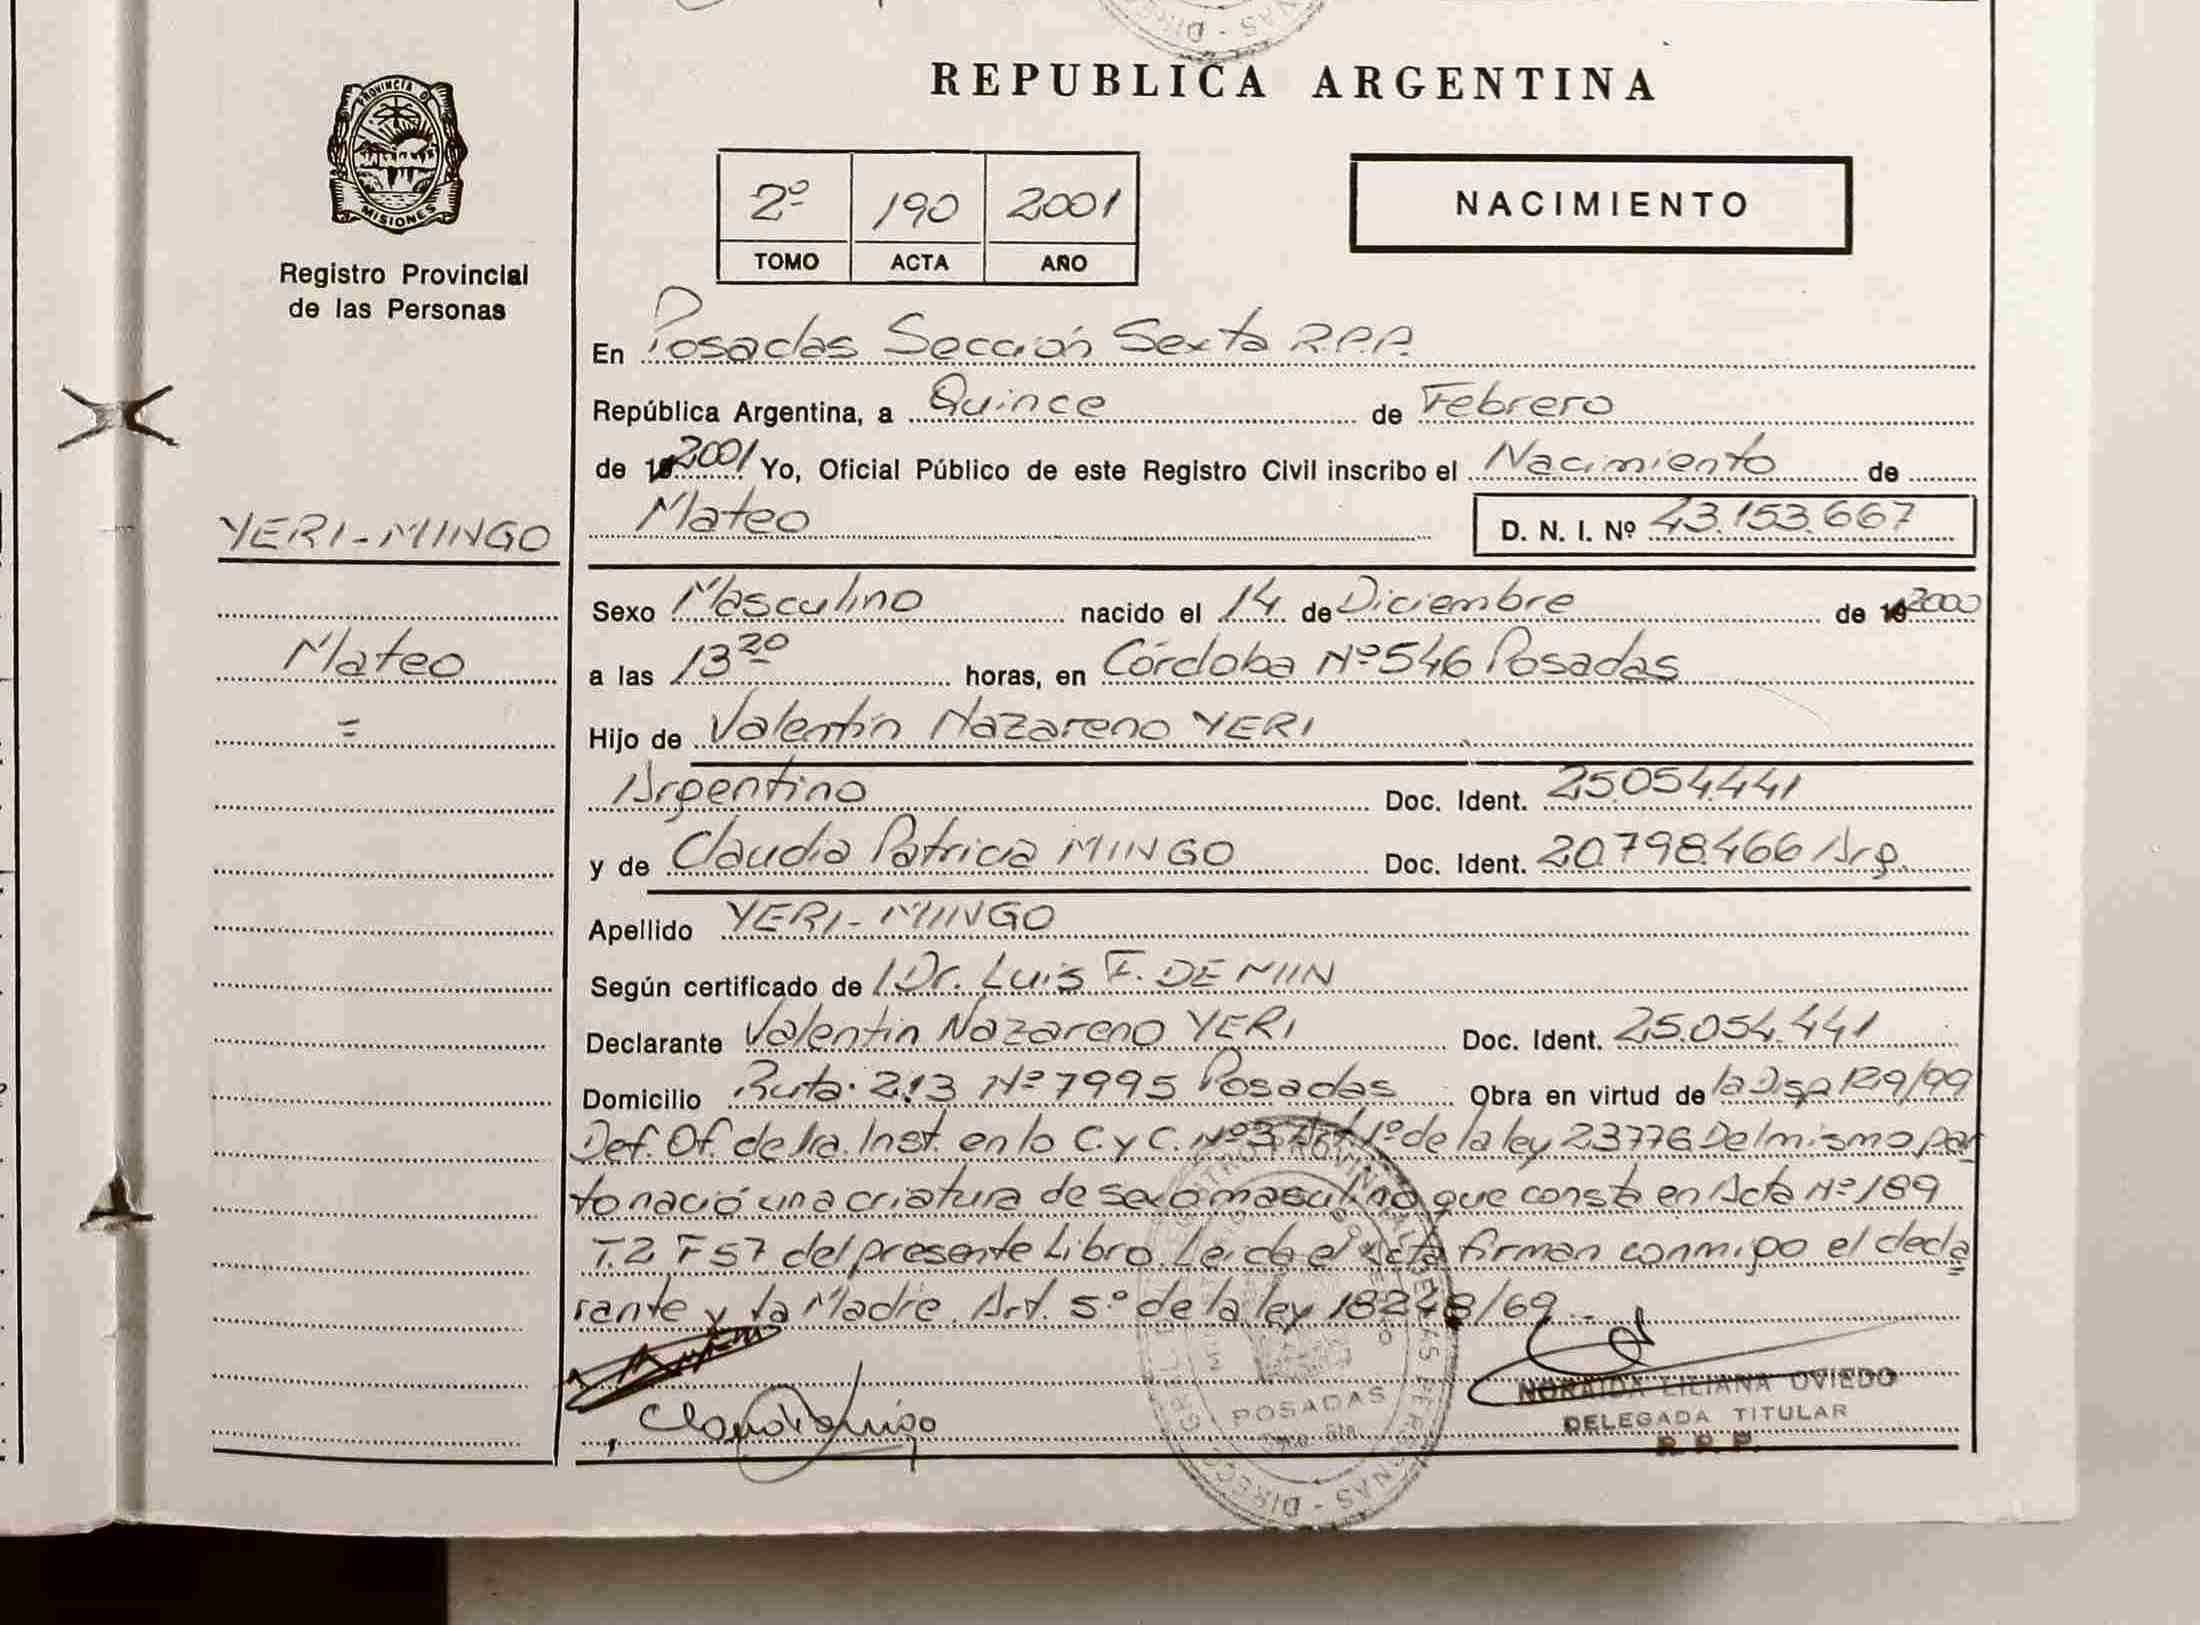 REPUBLICA ARGENTINA
PROVINCIA DE
MISIONES
Registro Provincial
de las Personas
2º 190 2001
TOMO ACTA AÑO
NACIMIENTO
En Posadas Sección Sexta R.P.P.
República Argentina, a Quince de Febrero
de 2001 Yo, Oficial Público de este Registro Civil inscribo el Nacimiento de
Mateo D. N. I. Nº 43.153.667
YERI-MINGO
Mateo
Sexo Masculino nacido el 14 de Diciembre de 2000
a las 13 20 horas, en Córdoba Nº 546 Posadas
Hijo de Valentín Nazareno YERI
Argentino Doc. Ident. 25.054.441
y de Claudia Patricia MINGO Doc. Ident. 20.798.466 Arg.
Apellido YERI-MINGO
Según certificado de Dr. Luis F. DE MIIN
Declarante Valentin Nazareno YERI Doc. Ident. 25.054.441
Domicilio Ruta 213 Nº 7995 Posadas Obra en virtud de la Disp 129/99
Def. Of. de 1ra. Inst. en lo C. y C. Nº 3 Art. 1º de la ley 23776 Del mismo par
to nació una criatura de sexo masculino que consta en Acta Nº 189
T.2 F 57 del presente Libro. Leida el Acta firman conmigo el decla
rante y la Madre. Art. 5º de la ley 18248/69
POSADAS
NORAIDA LILIANA OVIEDO
DELEGADA TITULAR
R. P. P.